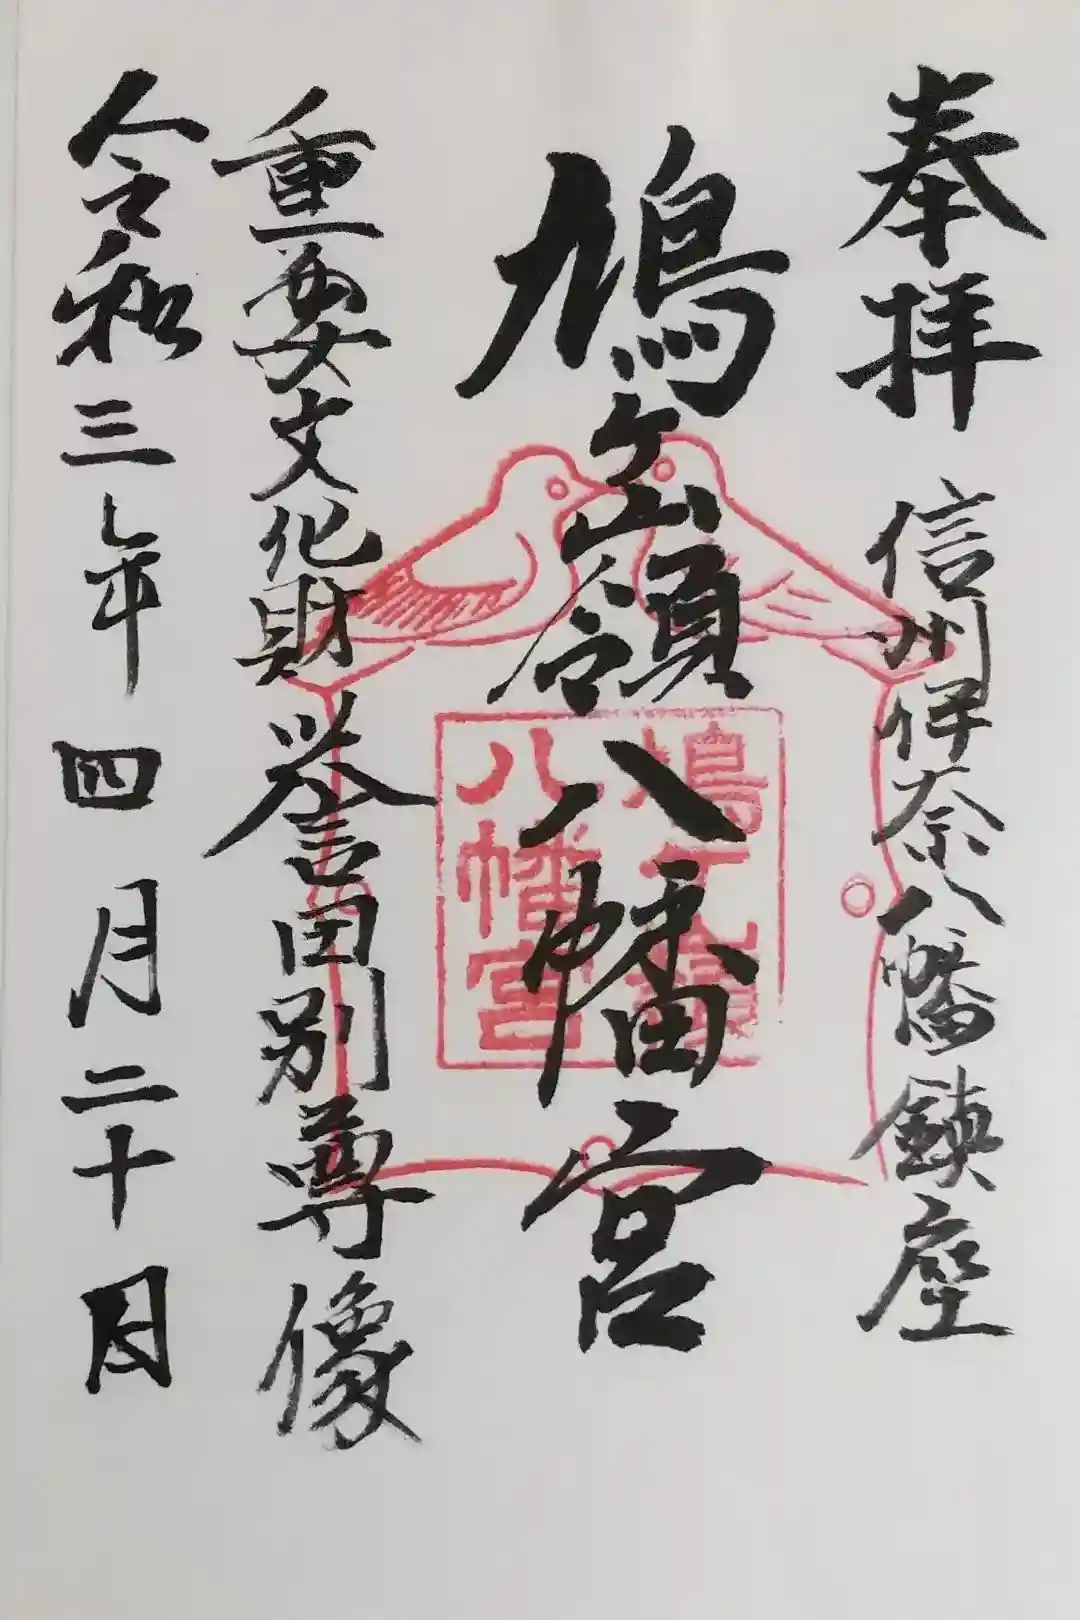 奉拝 信州伊奈八幡鎮座
鳩ヶ嶺八幡宮
重要文化財 誉田別尊像
令和三年四月二十日
鳩ヶ嶺
八幡宮